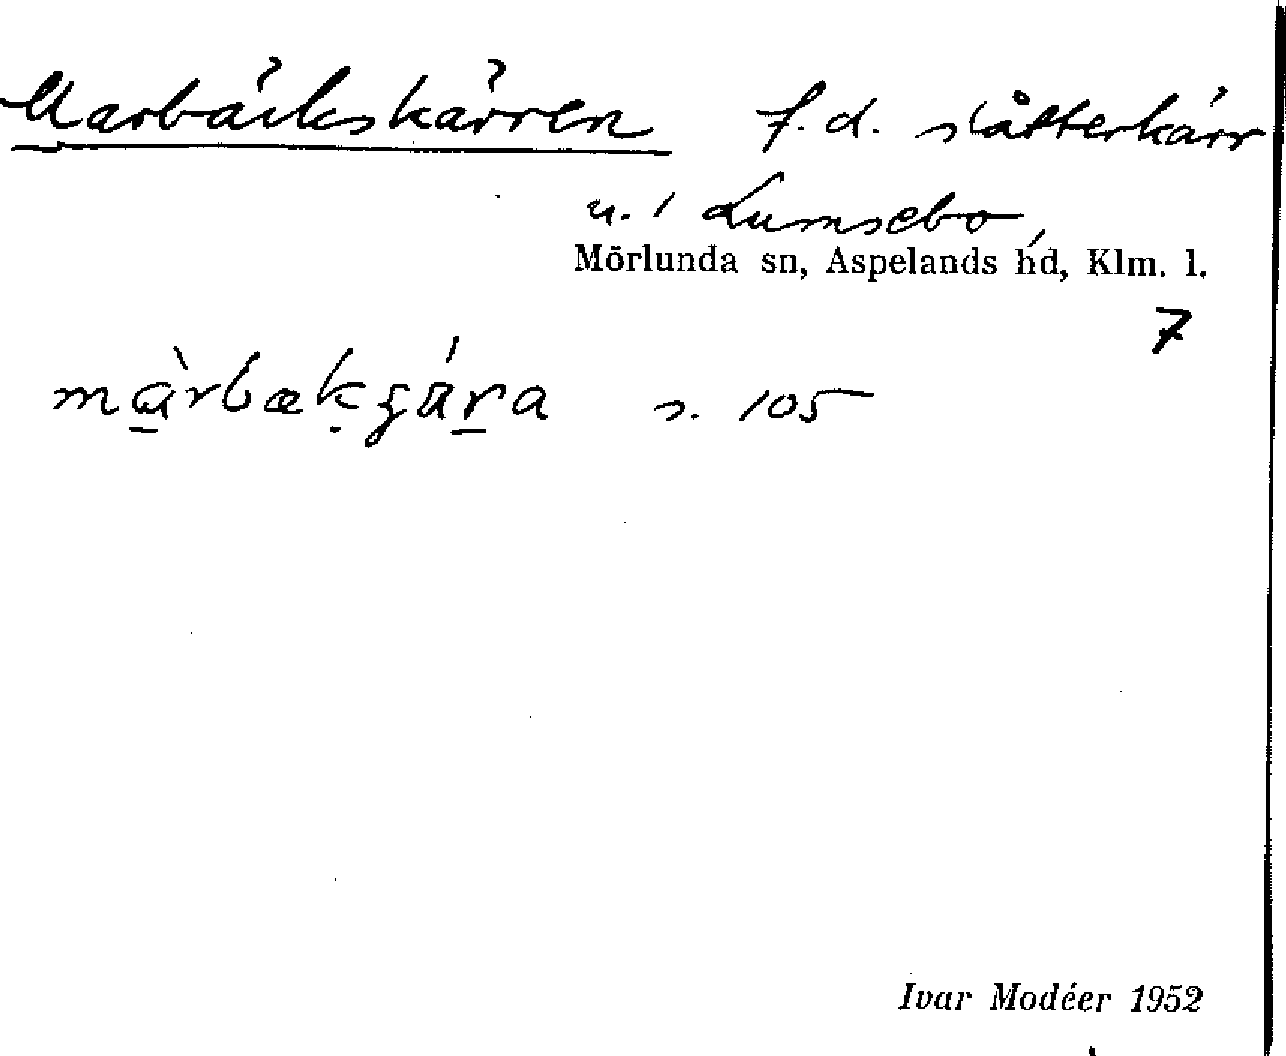 Marbäckskärren f.d. slåtterkärr
u. / Lumsebo,
Mörlunda sn, Aspelands hd, Klm. l.
7
s. 105
Ivar Modéer 1952